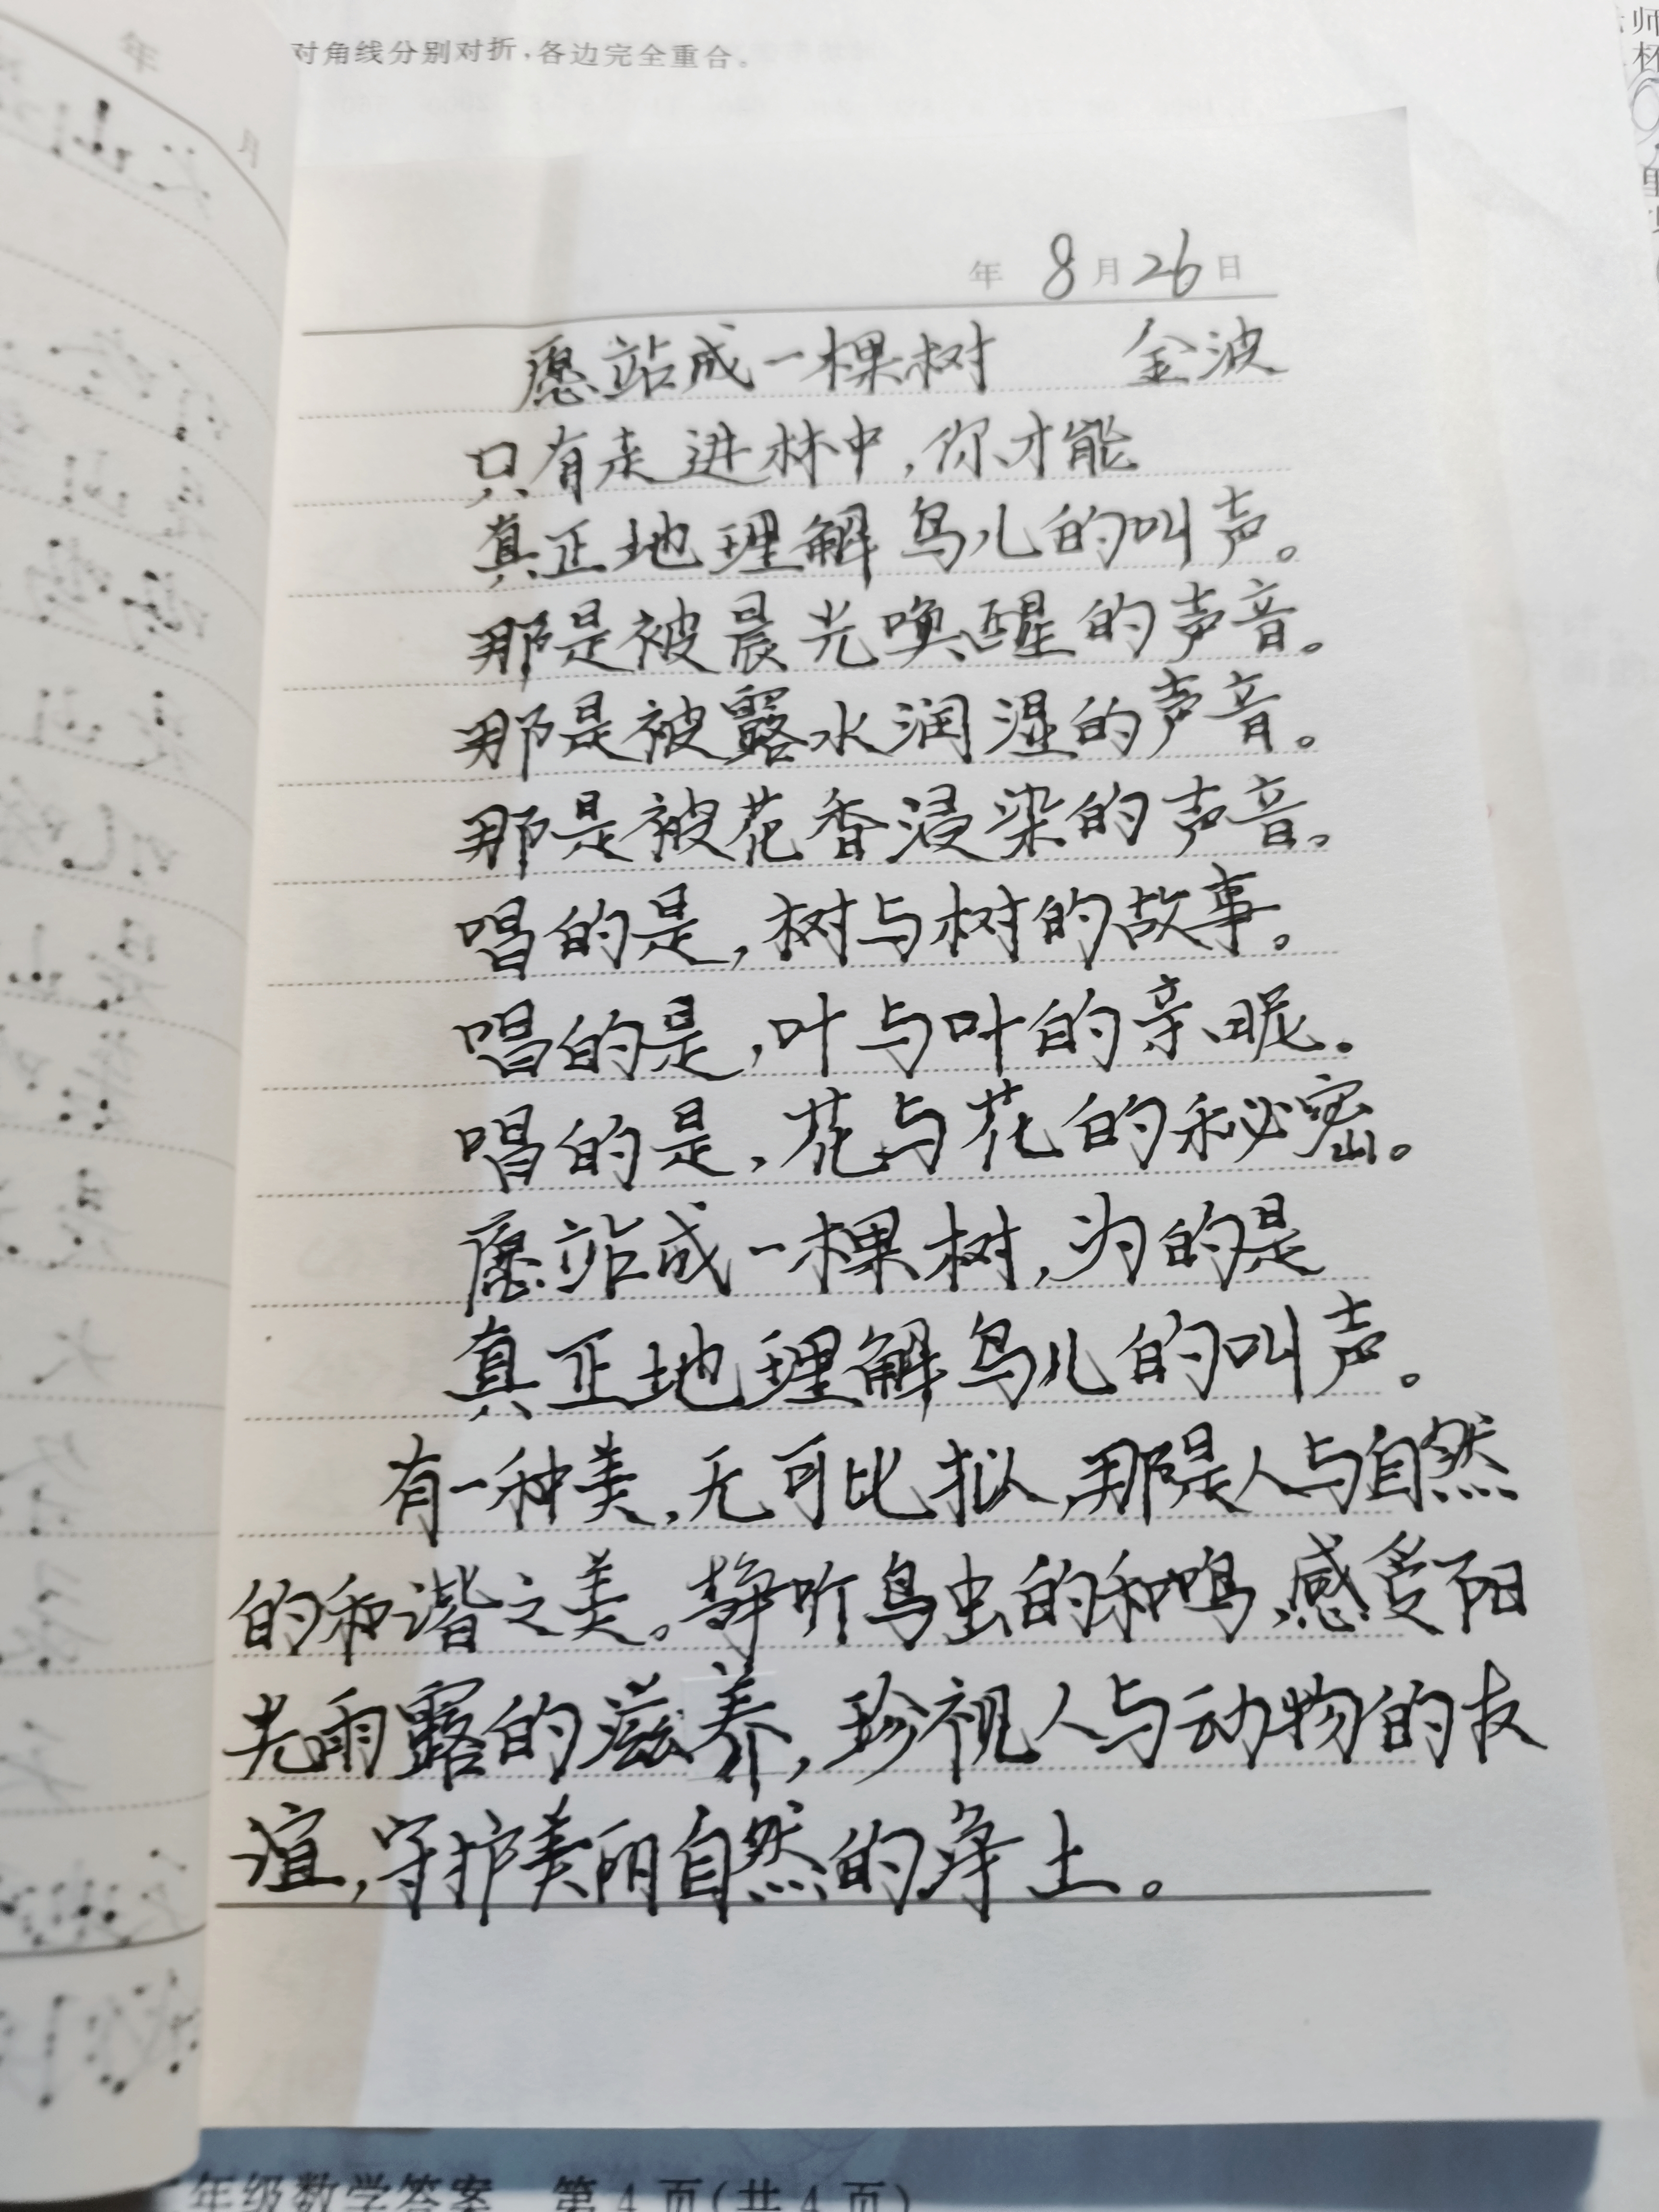 对角线分别对折，各边完全重合。
年 8月26日
愿站成一棵树 金波
只有走进林中，你才能
真正地理解鸟儿的叫声。
那是被晨光唤醒的声音。
那是被露水润湿的声音。
那是被花香浸染的声音。
唱的是，树与树的故事。
唱的是，叶与叶的亲昵。
唱的是，花与花的秘密。
愿站成一棵树，为的是
真正地理解鸟儿的叫声。
有一种美，无可比拟，那是人与自然
的和谐之美。静听鸟虫的和鸣，感受阳
光雨露的滋养，珍视人与动物的友
谊，守护美丽自然的净土。
年级数学答案 第4页(共4页)